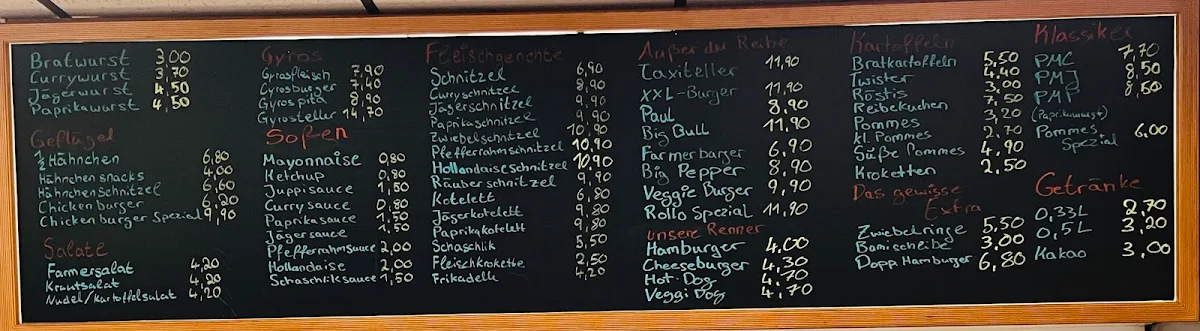 Bratwurst 3,00
Currywurst 3,70
Jägerwurst 4,50
Paprikawurst 4,50
Geflügel
½ Hähnchen 6,80
Hähnchen snacks 4,00
Hähnchen Schnitzel 6,60
Chicken burger 6,20
Chicken burger Spezial 9,90
Salate
Farmersalat 4,20
Krautsalat 4,20
Nudel/Kartoffelsalat 4,20
Gyros
Gyrosfleisch 7,90
Gyrosburger 7,40
Gyros pita 8,90
Gyrosteller 14,70
Soßen
Mayonnaise 0,80
Ketchup 0,80
Juppisauce 1,50
Currysauce 0,80
Paprikasauce 1,50
Jägersauce
Pfefferrahmsauce 2,00
Hollandaise 2,00
Schaschliksauce 1,50
Fleischgerichte
Schnitzel 6,90
Curryschnitzel 8,90
Jägerschnitzel 9,90
Paprikaschnitzel 9,90
Zwiebelschnitzel 10,90
Pfefferrahmschnitzel 10,90
Hollandaiseschnitzel 10,90
Räuberschnitzel 9,90
Kotelett 6,80
Jägerkotelett 9,80
Paprikakotelett 9,80
Schaschlik 5,50
Fleischkrokette 2,50
Frikadelle 4,20
Außer der Reihe
Taxiteller 11,90
XXL-Burger 11,90
Paul 8,90
Big Bull 11,90
Farmerburger 6,90
Big Pepper 8,90
Veggie Burger 9,90
Rollo Spezial 11,90
unsere Renner
Hamburger 4,00
Cheeseburger 4,30
Hot-Dog 4,70
Veggi Dog 4,70
Kartoffeln
Bratkartoffeln 5,50
Twister 4,40
Röstis 3,00
Reibekuchen 7,50
Pommes 3,20
kl. Pommes 2,70
Süße Pommes 4,90
Kroketten 2,50
Das gewisse
Extra
Zwiebelringe 5,50
Bamischeibe 3,00
Dopp Hamburger 6,80
Klassiker
PMC 7,70
PMJ 8,50
PMP 8,50
(Paprikawurst)
Pommes 6,00
Spezial
Getränke
0,33L 2,70
0,5L 3,20
Kakao 3,00